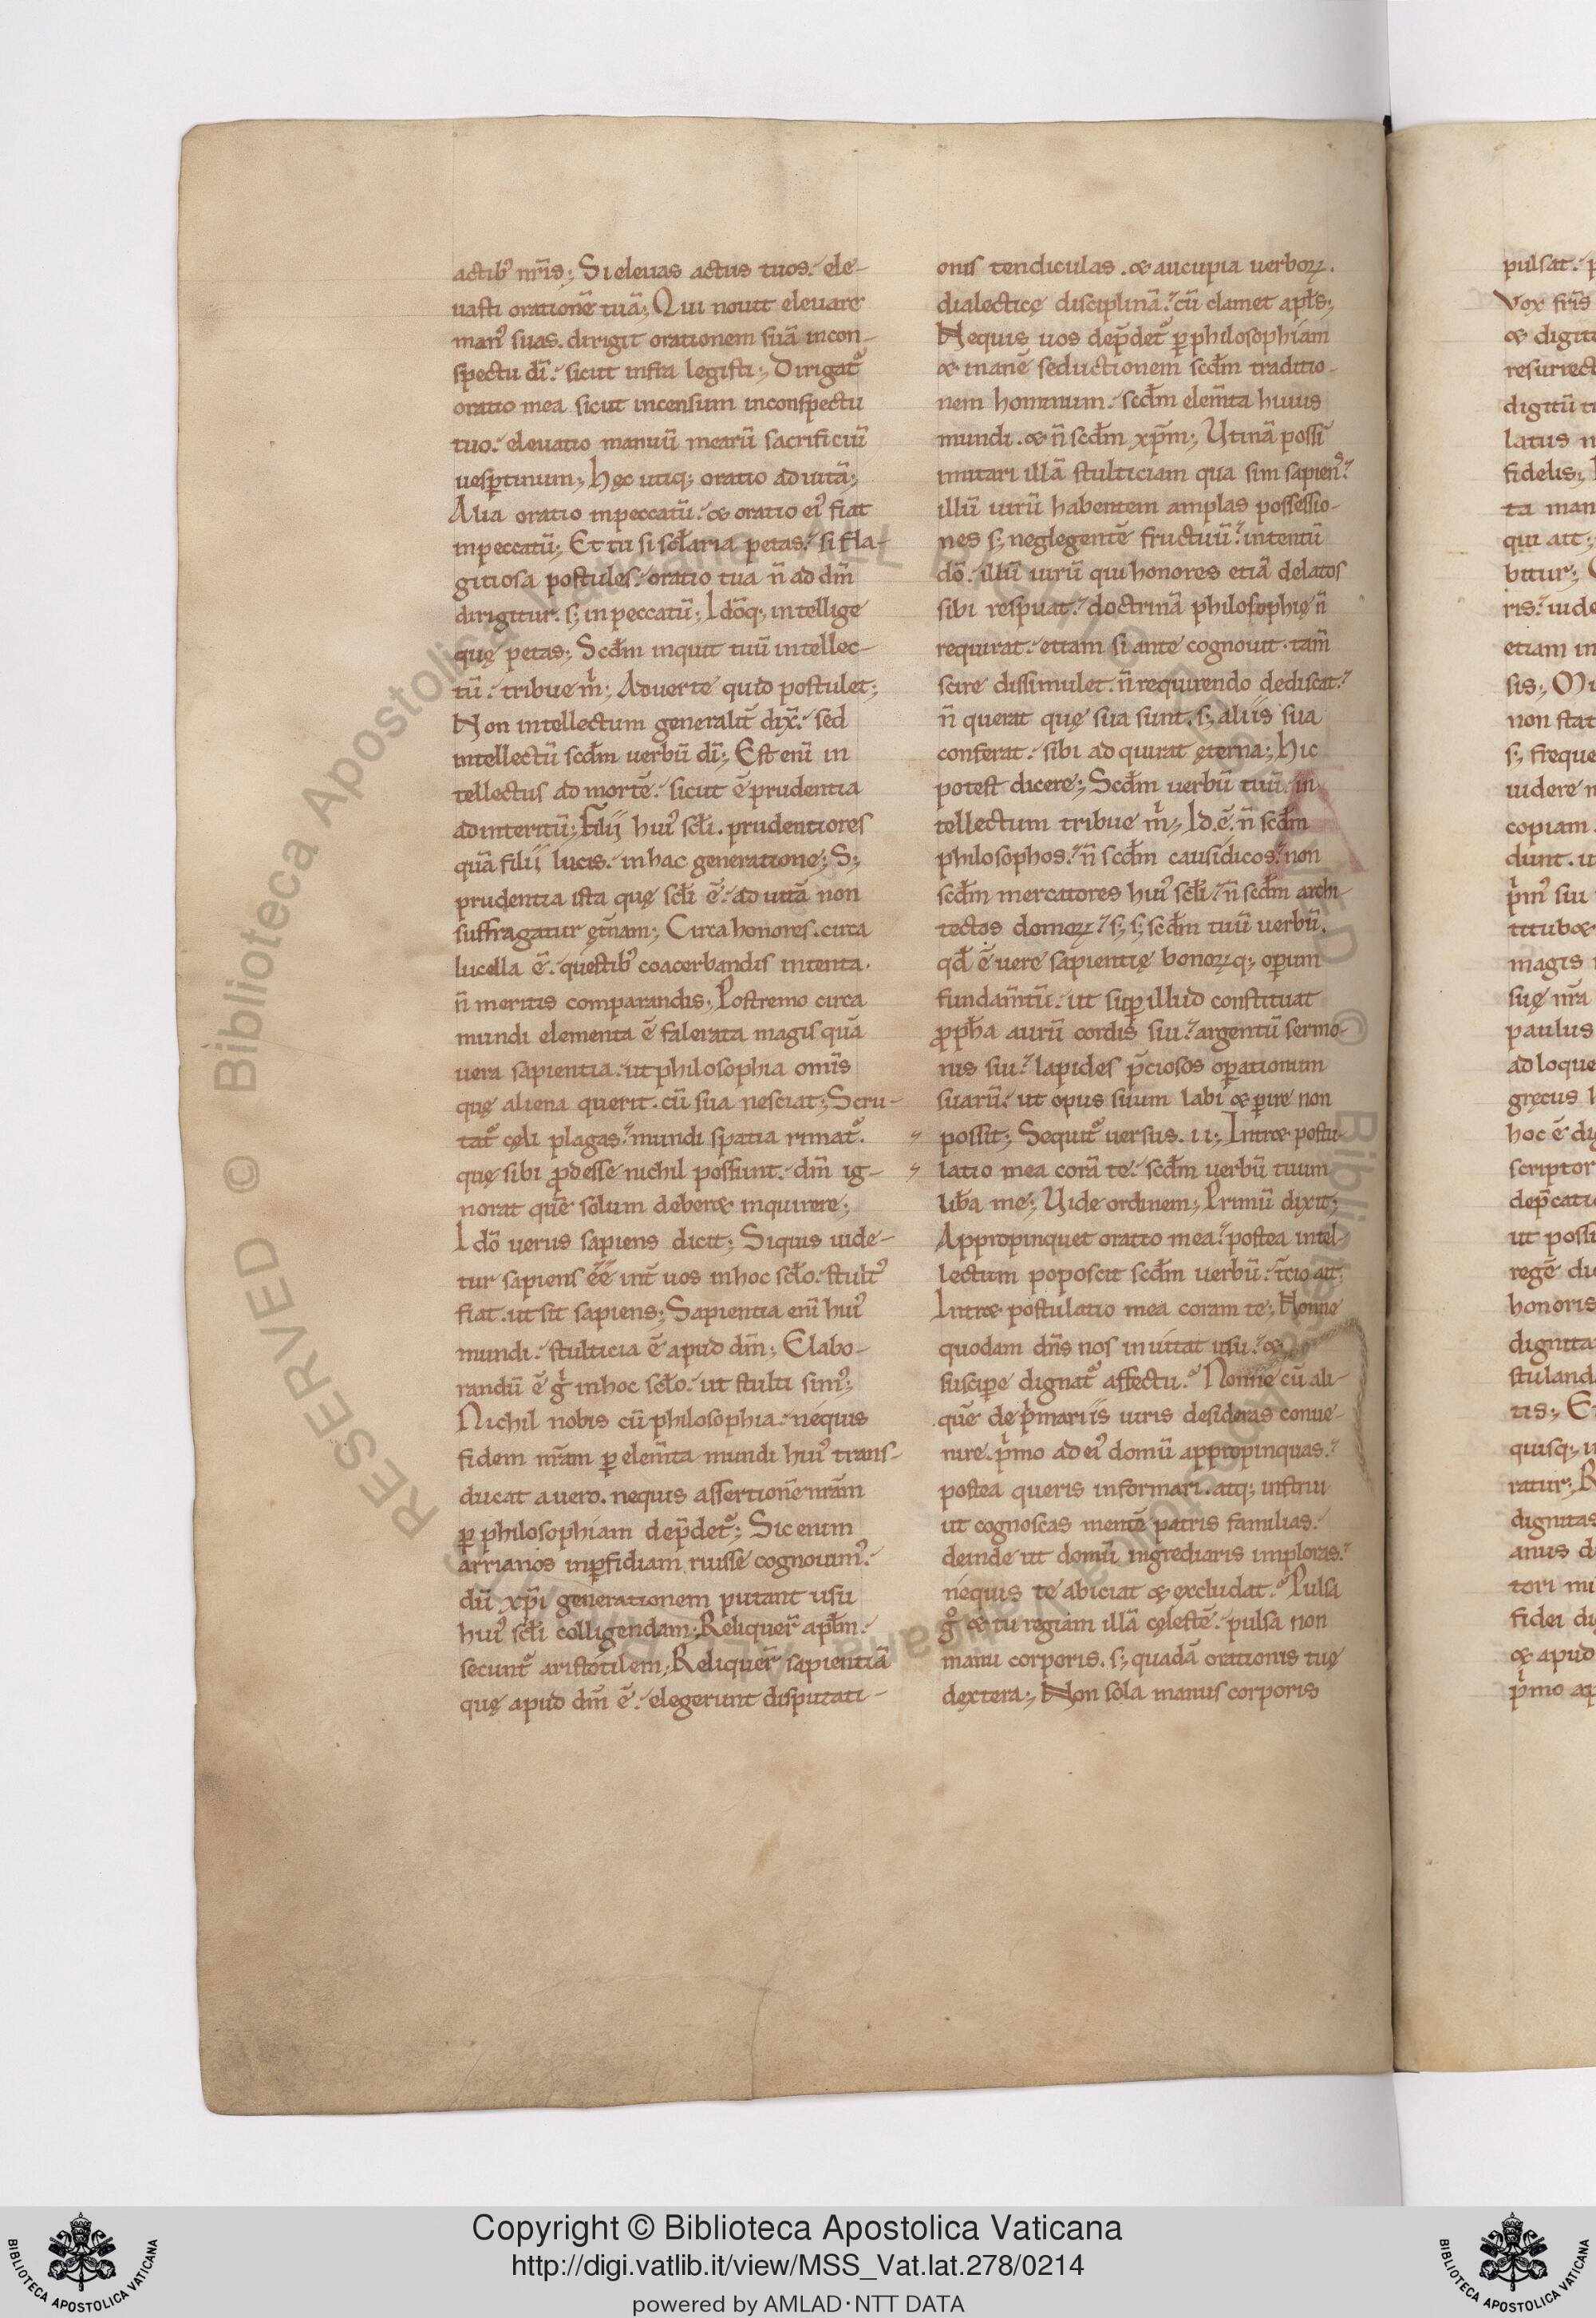 actib' nr̃is; Si eleuas actus tuos. ele-
uasti orationē tuā; Qui nouit eleuare
man' suas. dirigit orationem suā incon-
spectu dī. sicut infra legisti; Dirigat᷑
oratio mea sicut incensum inconspectu
tuo. eleuatio manuū mearū sacrificiū
uesptinum; Hęc utiq; oratio ad uitā;
Alia oratio inpeccatū. & oratio ei' fiat
inpeccatū; Et tu si scłaria petas. si fla-
gitiosa postules. oratio tua ñ ad dm̄
dirigitur. s; inpeccatū; Idōq; intellige
quę petas; Scđm inquit tuū intellec-
tū. tribue m̍; Aduerte quid postulet;
Non intellectum generalit̄ dix̄. sed
intellectū scđm uerbū dī; Est enī in
tellectus ad mortē. sicut ē prudentia
adinteritū; Filij hui' scłi. prudentiores
quā filii lucis. inhac generatione; S;
prudentia ista quę scłi ē. ad uitā non
suffragatur ęt̄nam; Circa honores. circa
lucella ē. questib' coacerbandis intenta.
ñ meritis comparandis; Postremo circa
mundi elementa ē falerata magis quā
uera sapientia. ut philosophia om̄is
quę aliena querit. cū sua nesciat; Scru-
tat᷑ cęli plagas. mundi spatia rimat᷑.
quę sibi ꝓdesse nichil possunt. dm̄ ig-
norat quē solum deber& inquirere;
Idō uerus sapiens dicit; Siquis uide-
tur sapiens ēē int̄ uos inhoc scło. stult'
fiat. ut sit sapiens; Sapientia enī hui'
mundi. stulticia ē apud dm̄; Elabo-
randū ē g̍ inhoc scło. ut stulti sim';
Nichil nobis cū philosophia. nequis
fidem nr̄am ꝑ elem̄ta mundi hui' trans-
ducat auero. nequis assertionē nr̄am
ꝑ philosophiam dep̄det᷑; Sic enim
arrianos inꝑfidiam ruisse cognouim'.
dū xp̄i generationem putant usu
hui' scłi colligendam; Reliquer̄ apłm.
secunt᷑ aristotilem; Reliquer̄ sapientiā
quę apud dm̄ ē. elegerunt disputati-
onis tendiculas. & aucupia uerboꝝ.
dialecticę disciplinā. cū clamet apłs;
Nequis uos dep̄det᷑ ꝑ philosophiam
& inanē seductionem scđm traditio-
nem hominum. scđm elem̄ta huius
mundi. & ñ scđm xp̄m; Utinā possī
imitari illā stulticiam qua sim sapiens.
illū uirū habentem amplas possessio-
nes s; neglegentē fructuū. intentū
dō. illū uirū qui honores etiā delatos
sibi respuat. doctrinā philosophię ñ
requirat. etiam si ante cognouit. tam̄
scire dissimulet. ñ requirendo dediscat.
ñ querat quę sua sunt. s; aliis sua
conferat. sibi ad quirat ęterna; Hic
potest dicere; Scđm uerbū tuū. in
tellectum tribue m̍; Id. ē. ñ scđm
philosophos. ñ scđm causidicos. non
scđm mercatores hui' scłi. ñ scđm archi-
tectos domoꝝ. s; s; scđm tuū uerbū.
qđ ē uere sapientię bonoꝝq; opum
fundam̄tū. ut suꝑ illud constituat
ꝓpħa aurū cordis sui. argentū sermo-
nis sui. lapides p̄ciosos oꝑationum
suarū. ut opus suum labi & ꝑire non
possit; Sequit᷑ uersus. ii; Intr& postu-
latio mea corā te. scđm uerbū tuum
lib̄a me; Uide ordinem; Primū dixit;
Appropinquet oratio mea. postea intel-
lectum poposcit scđm uerbū. t̄cio ait.
Intr& postulatio mea coram te; Nonne
quodam dn̄s nos inuitat usu. &
suscipe dignat᷑ affectu. Nonne cū ali-
quē de p̍mariis uiris desideras conue-
nire. p̍mo ad ei' domū appropinquas.
postea queris informari. atq; instrui
ut cognoscas mentē patris familias.
deinde ut domū ingrediaris imploras.
nequis te abiciat & excludat. Pulsa
g̊ & tu regiam illā cęlestē. pulsa non
manu corporis. s; quadā orationis tuę
dextera; Non sola manus corporis
pulsat.
Vox fr̄is
& digit
resurrect
digitū
latus
fidelis;
ta man
qui ait
bitur;
ris. uide
etiam in
sis;
non stat
s; freque
uidere
copiam
dunt. ut
p̍m' sui
titub&
magis
suę nr̄a
paulus
ad loque
gręcus
hoc ē di
scriptor
dep̄cati
ut possi
regē di
honoris
dignita
stuland
tis; Et
quisq;
ratur;
dignitas
anus d
tori mi
fidei di
& apud
p̍mo ap
Copyright © Biblioteca Apostolica Vaticana
http://digi.vatlib.it/view/MSS_Vat.lat.278/0214
powered by AMLAD·NTT DATA
BIBLIOTECA APOSTOLICA VATICANA
BIBLIOTECA APOSTOLICA VATICANA